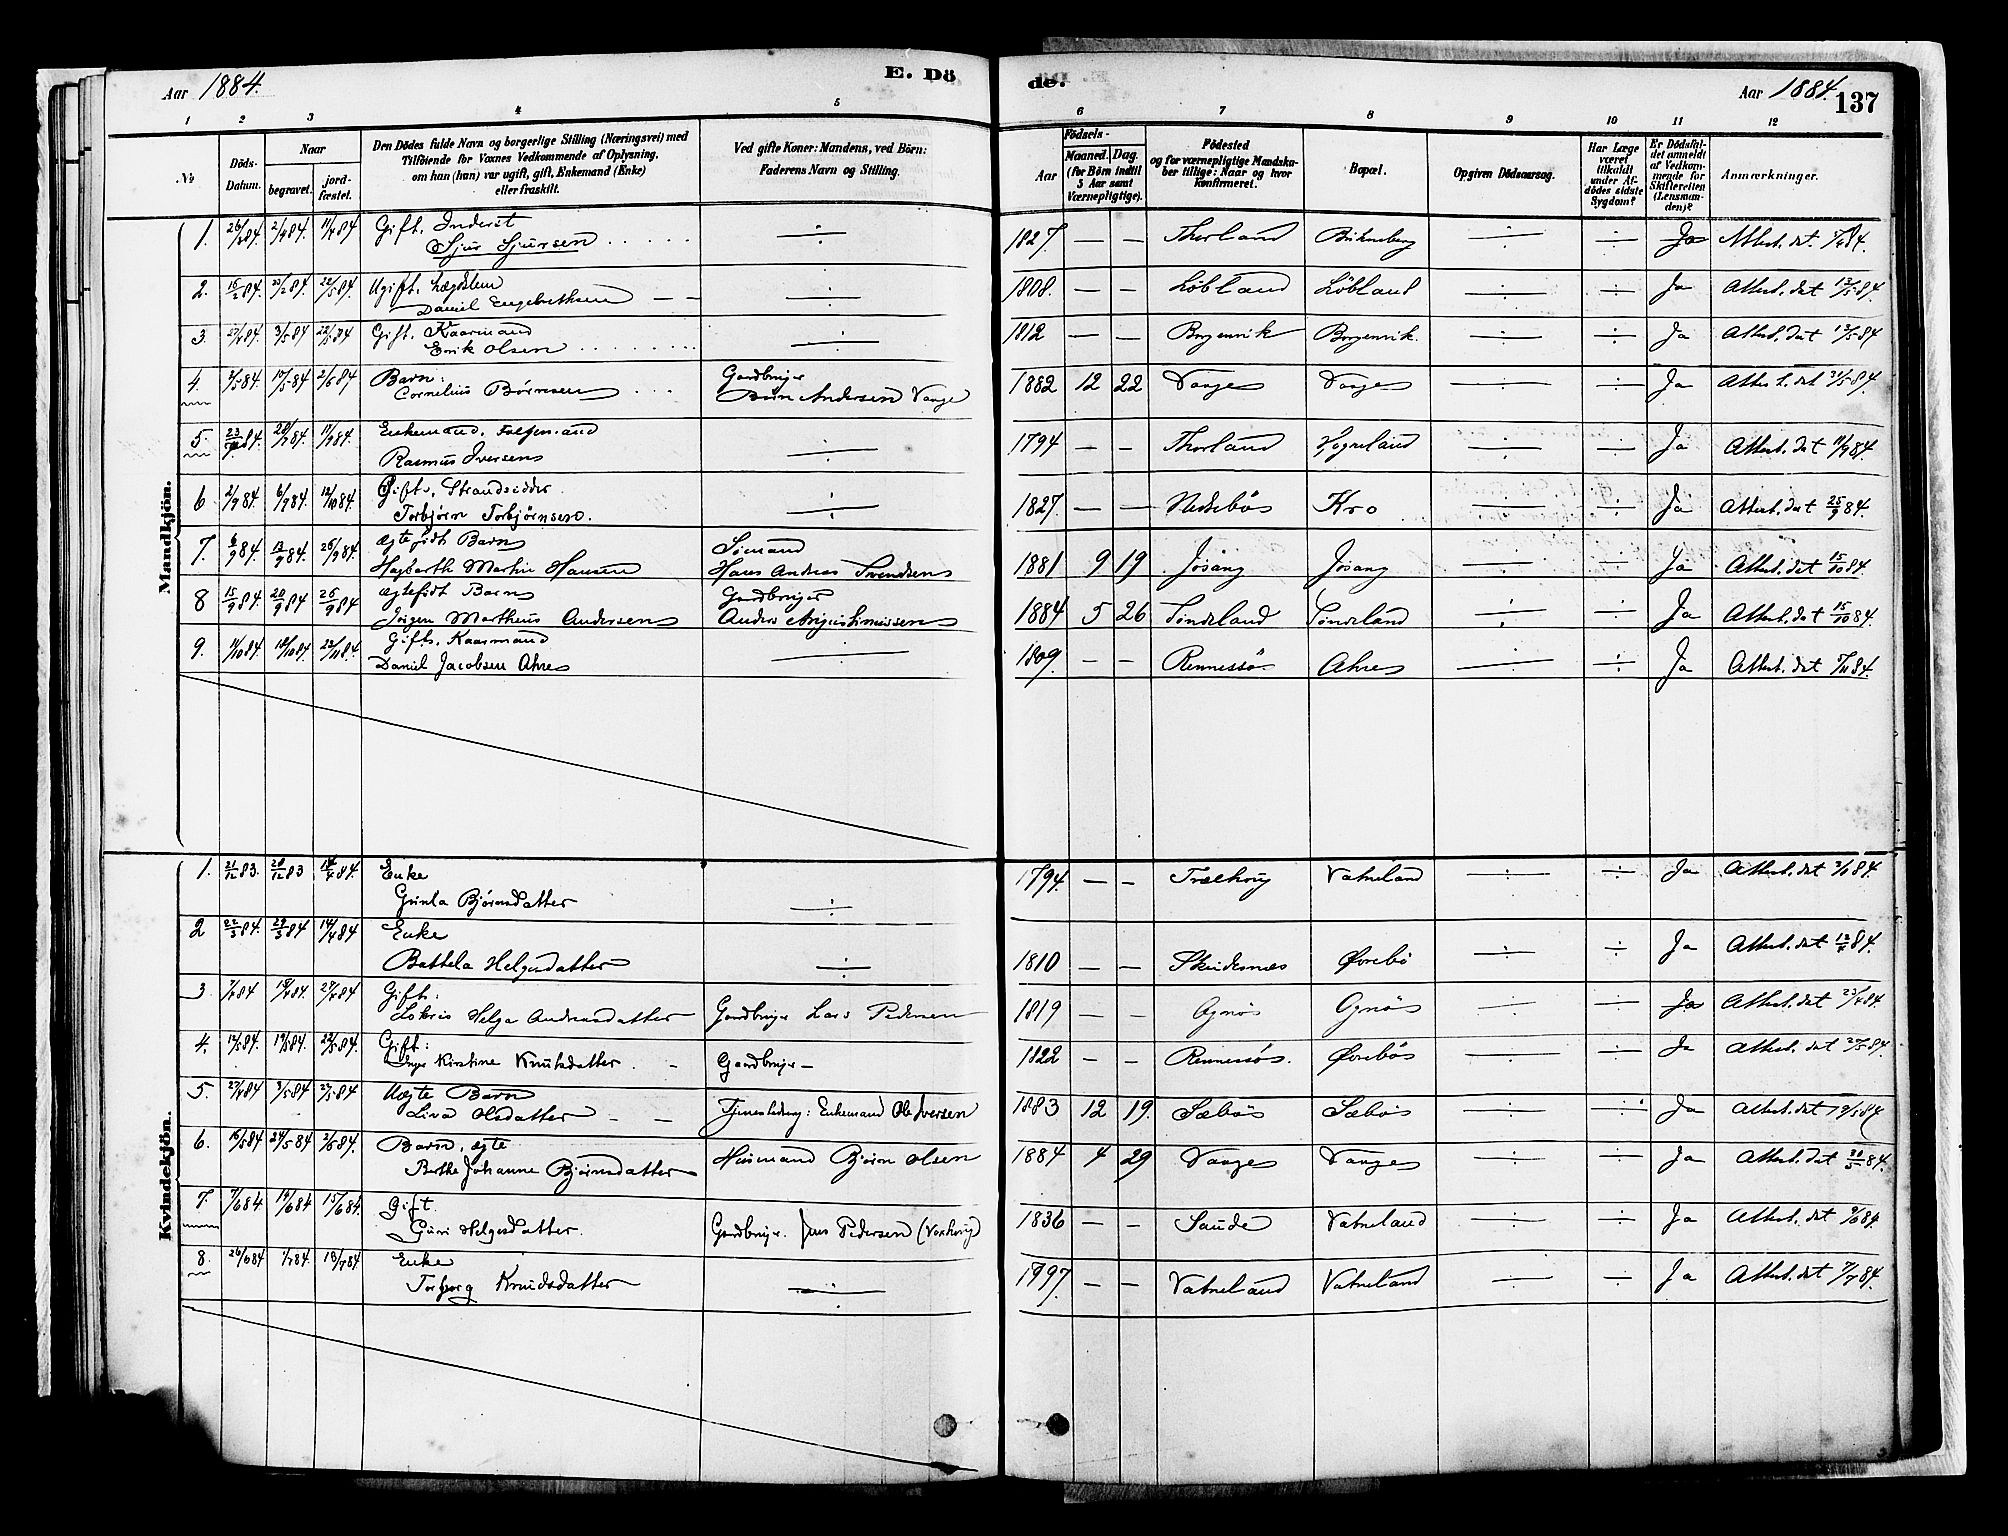 Aar 1884.
E. Dö
de.
Aar 1884.
137
1 2 3 4 5 6 7 8 9 10 11 12
No
Döds-Datum.
Naar
begravet.
jord-fæstet.
Den Dödes fulde Navn og borgerlige Stilling (Næringsvei) med
Tilföiende for Voxnes Vedkommende af Oplysning,
om han (hun) var ugift, gift, Enkemand (Enke)
eller fraskilt.
Ved gifte Koner: Mandens, ved Börn:
Faderens Navn og Stilling.
Födsels-
Aar
Maaned. Dag.
(for Börn indtil
5 Aar samt
Værnepligtige).
Födested
og for værnepligtige Mandska-
ber tillige: Naar og hvor
konfirmeret.
Bopæl.
Opgiven Dödsaarsag.
Har Læge
været
tilkaldt
under Af-
dödes sidste
Sygdom?
Er Dödsfal-
det anmeldt
af Vedkom-
mende for
Skifteretten
(Lensman-
den)?
Anmærkninger.
Mandkjön.
1. 2/4 84 11/4 84 Gift. Inderst
Sjur Sjursen ÷ 1827 — — Thorland ÷ ÷ Ja Attest. dat.
2. 15/2 84 Ugift. Lægdslem
Daniel Engebrethsen ÷ 1808. — — Löbland Löbland ÷ ÷ Ja Attest. dat 13/5 84
3. 3/5 84 Gift. Kaarmand
Erik Olsen ÷ 1812 — — Borgenvik Borgenvik. ÷ ÷ Ja Attest. dat 13/5 84
4. 17/5 84 2/6 84 Barn: Gaardbruger
Cornelius Börnsen Börn Andersen Vaage 1882 12 22 Vaage Vaage ÷ ÷ Ja Attest. dat 31/5 84.
5. 84. 84. Enkemand.
Rasmus Iversen ÷ 1794 — — Thorland Hogneland ÷ ÷ Ja Attest. dat 11/9 84
6 2/9 84 6/9 84 12/10 84. Gift. Strandsidder
Torbjørn Torbjørnsen. ÷ 1827. — — Nedstebös Kro ÷ ÷ Ja Attest. dat 25/9 84.
7. 6/9 84 13/9 84 26/9 84. Ægtefödt Barn Sömand
Hagbarth Martin Hansen Hans Andreas Svendsen 1881 9 19 Jösang Jösang ÷ ÷ Ja Attest. dat 15/10 84.
8 15/9 84. 20/9 84 26/9 84 Ægtefödt Barn Gaardbruger
Jörgen Martheus Andersen Anders Augustinussen 1884 5 26 Töndeland Töndeland ÷ ÷ Ja Attest. dat 15/10 84.
9. 11/10 84 18/10 84 22/11 84 Gift. Kaarmand
Daniel Jacobsen Ahre ÷ 1809. — — Rennesö Ahre ÷ ÷ Ja Attest. dat 84.
Kvindekjön.
1. 21/12 83. 28/12 83 14/4 84. Enke
Gunla Björnsdatter ÷ 1794. — — Vatneland ÷ ÷ Ja Attest. dat 84.
2 22/3 84. 29/3 84 14/4 84 Enke
Battela Helgesdatter ÷ 1810 — — Skudesnes Ørebö ÷ ÷ Ja Attest. dat 12/4 84.
3. 7/4 84 18/4 84. 27/4 84 Gift:
Helga Andreasdatter Gaardbruger Lars Pedersen 1819 — — Ognös Ognös ÷ ÷ Ja Attest. dat 23/4 84.
4. 12/5 84. 19/5 84 22/5 84. Gift:
Inger Kirstine Knutsdatter. Gaardbruger — 1822 — — Rennesös. Ørebös ÷ ÷ Ja Attest. dat 27/5 84.
5. 27/4 84 3/5 84 27/5 84 Uægte Barn
Lina Olsdatter Enkemand Ole Iversen 1883 12 19. Sæbös Sæbös ÷ ÷ Ja Attest. dat 84
6. 16/5 84 24/5 84 2/6 84. Barn, ægte
Berthe Johanne Björnsdatter Husmand Björn Olsen 1884 4 29 Vaage Vaage ÷ ÷ Ja Attest. dat 84.
7. 7/6 84 14/6 84 15/6 84. Gift.
Guri Helgesdatter. Gaardbruger. Jens Pedersen 1836 — — Saude Vatneland ÷ ÷ Ja Attest. dat 84.
8. 26/6 84 1/7 84. 13/7 84 Enke
Torborg Knudsdatter ÷ 1797. — — Vatneland Vatneland ÷ ÷ Ja Attest. dat 7/7 84.